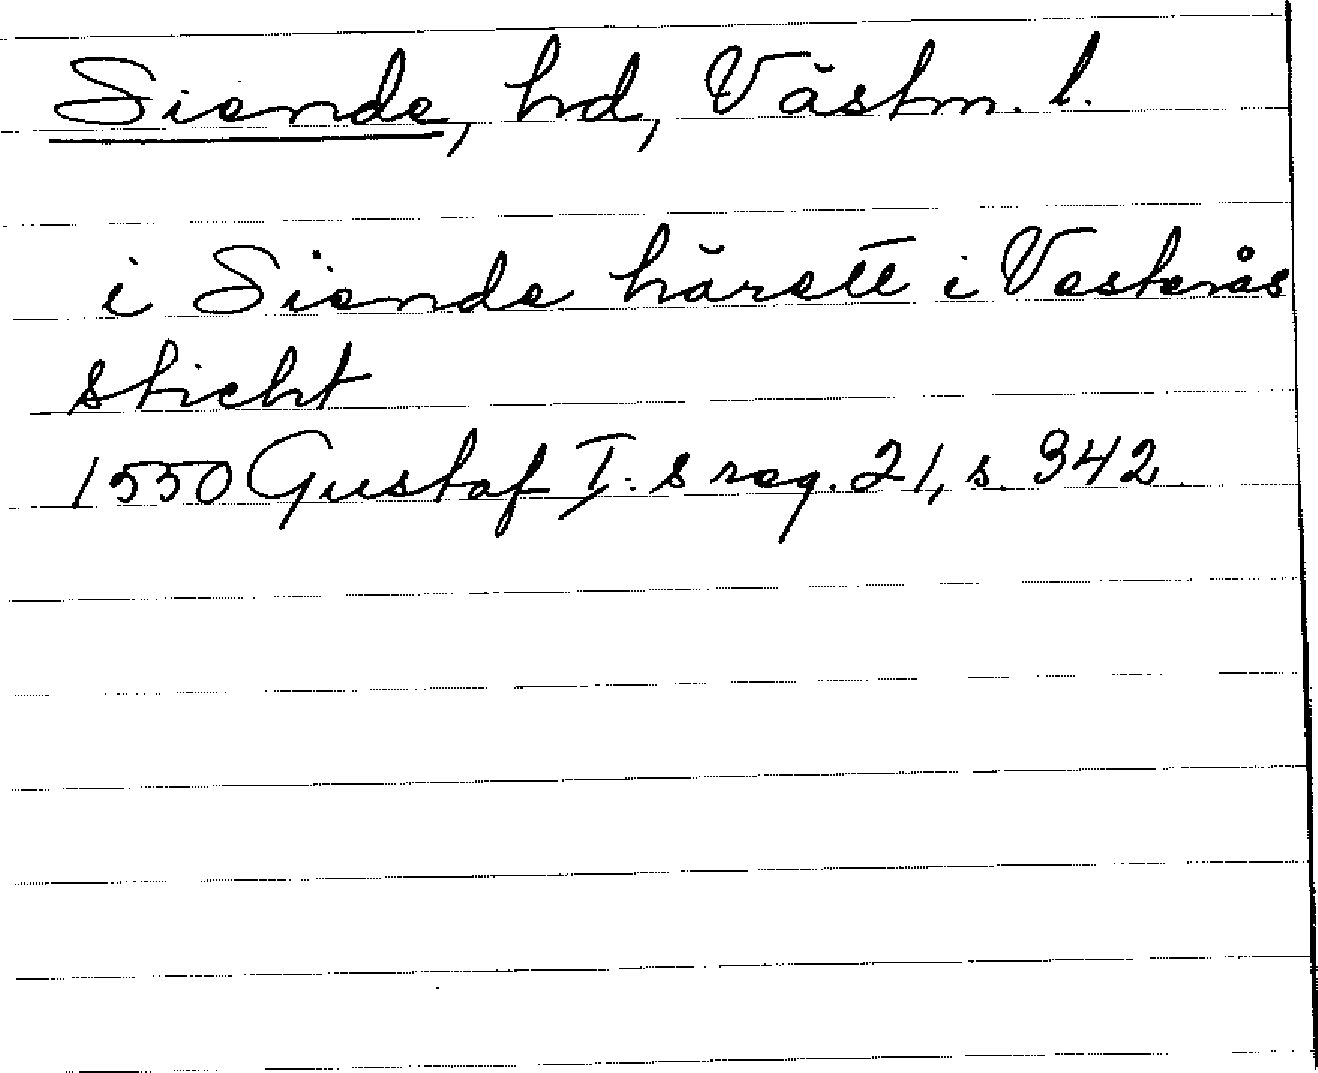 Siende, hd, Västm. l.
i Siende härett i Vesterås
sticht
1550 Gustaf I:s reg. 21, s. 342